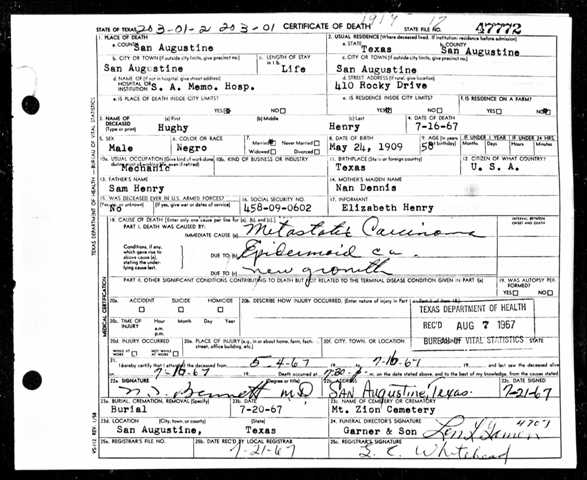 1917 17
STATE OF TEXAS 203-01-2 203-01 CERTIFICATE OF DEATH STATE FILE NO. 47772
1. PLACE OF DEATH
a. COUNTY
San Augustine
2. USUAL RESIDENCE (Where deceased lived. If institution: residence before admission)
a. STATE
Texas
b. COUNTY
San Augustine
b. CITY OR TOWN (If outside city limits, give precinct no.)
San Augustine
c. LENGTH OF STAY
Life
c. CITY OR TOWN (If outside city limits, give precinct no.)
San Augustine
d. NAME OF (If not in hospital, give street address)
HOSPITAL OR
INSTITUTION S. A. Memo. Hosp.
d. STREET ADDRESS (If rural, give location)
410 Rocky Drive
e. IS PLACE OF DEATH INSIDE CITY LIMITS?
YES NO
e. IS RESIDENCE INSIDE CITY LIMITS?
YES NO
f. IS RESIDENCE ON A FARM?
YES NO
3. NAME OF
DECEASED
(Type or print)
(a) First
Hughy
(b) Middle
(c) Last
Henry
4. DATE OF DEATH
7-16-67
5. SEX
Male
6. COLOR OR RACE
Negro
7. Married Never Married
Widowed Divorced
8. DATE OF BIRTH
May 24, 1909
9. AGE (In years
58
IF UNDER 1 YEAR
Months Days
IF UNDER 24 HRS.
Hours Minutes
10a. USUAL OCCUPATION (Give kind of work done
Mechanic
10b. KIND OF BUSINESS OR INDUSTRY
11. BIRTHPLACE (State or foreign country)
Texas
12. CITIZEN OF WHAT COUNTRY?
U. S. A.
13. FATHER'S NAME
Sam Henry
14. MOTHER'S MAIDEN NAME
Nan Dennis
15. WAS DECEASED EVER IN U.S. ARMED FORCES?
(If yes, give war or dates of service)
No
16. SOCIAL SECURITY NO.
458-09-0602
17. INFORMANT
Elizabeth Henry
18. CAUSE OF DEATH [Enter only one cause per line for (a), (b), and (c).]
INTERVAL BETWEEN
ONSET AND DEATH
PART I. DEATH WAS CAUSED BY:
IMMEDIATE CAUSE (a) Metastatic Carcinoma
Conditions, if any,
which gave rise to
above cause (a),
stating the under-
lying cause last.
DUE TO (b) Epidermoid ca.
DUE TO (c) new growth
PART II. OTHER SIGNIFICANT CONDITIONS CONTRIBUTING TO DEATH BUT NOT RELATED TO THE TERMINAL DISEASE CONDITION GIVEN IN PART I(a)
19. WAS AUTOPSY PER-
FORMED?
YES NO
20a. ACCIDENT SUICIDE HOMICIDE
20b. DESCRIBE HOW INJURY OCCURRED. (Enter nature of injury in Part I
TEXAS DEPARTMENT OF HEALTH
REC'D AUG 7 1967
BUREAU OF VITAL STATISTICS
20c. TIME OF
INJURY
Hour Month Day Year
a.m.
p.m.
20d. INJURY OCCURRED
20e. PLACE OF INJURY (e.g., in or about home, farm, factory,
street, office building, etc.)
20f. CITY, TOWN, OR LOCATION
STATE
21. I hereby certify that I attended the deceased from 5-4-67 to 7-16-67 and last saw the deceased alive
7-16-67 Death occurred at 7:30 m. on the date stated above, and to the best of my knowledge, from the causes stated.
22a. SIGNATURE
Bennett M.D.
(Degree or title)
22b. ADDRESS
San Augustine, Texas
22c. DATE SIGNED
7-21-67
23a. BURIAL, CREMATION, REMOVAL (Specify)
Burial
23b. DATE
7-20-67
23c. NAME OF CEMETERY OR CREMATORY
Mt. Zion Cemetery
23d. LOCATION (City, town, or county) (State)
San Augustine, Texas
24. FUNERAL DIRECTOR'S SIGNATURE
Garner & Son
4707
25a. REGISTRAR'S FILE NO.
25b. DATE REC'D BY LOCAL REGISTRAR
7-21-67
25c. REGISTRAR'S SIGNATURE
Whitehead
TEXAS DEPARTMENT OF HEALTH — BUREAU OF VITAL STATISTICS
MEDICAL CERTIFICATION
VS-112 REV. 1/58